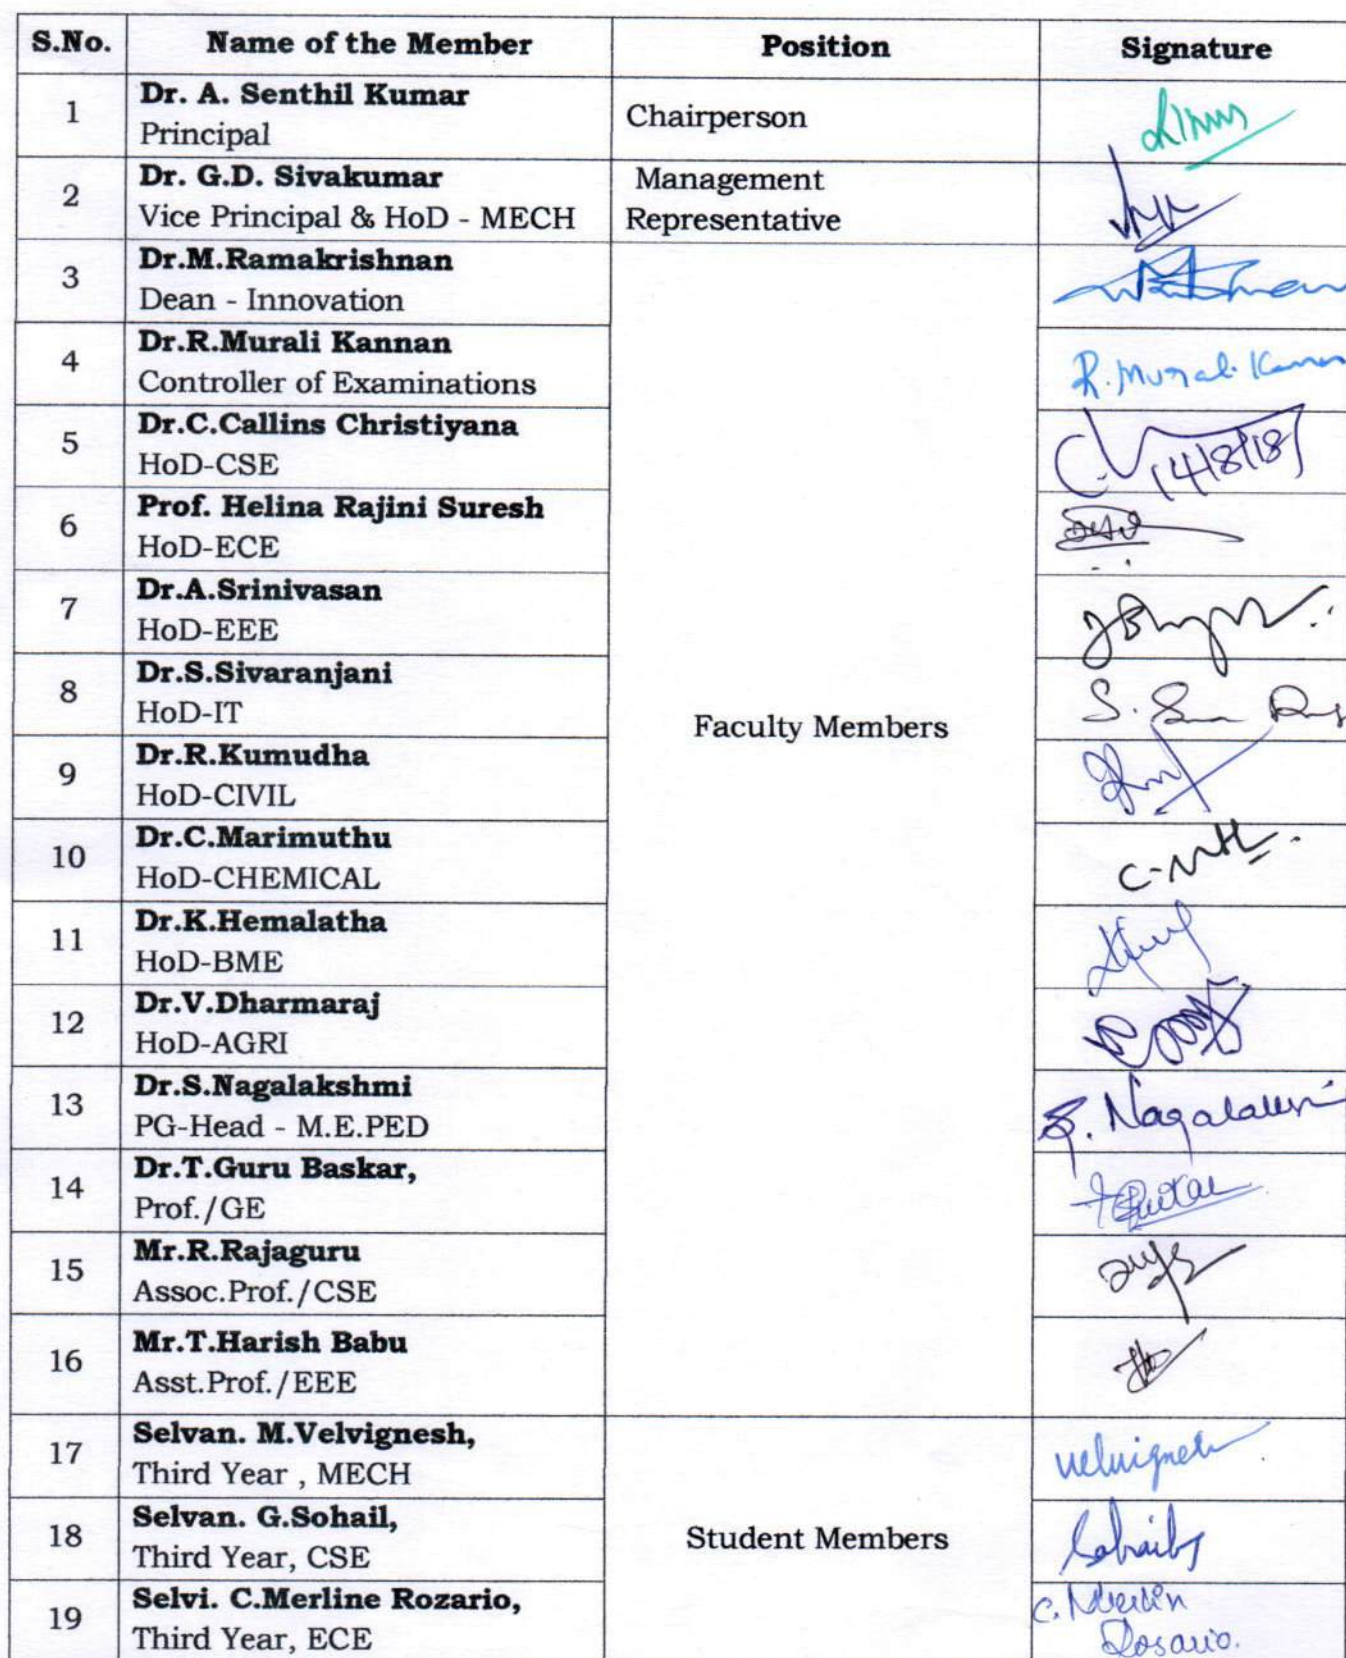 S.No. Name of the Member Position Signature
1 Dr. A. Senthil Kumar
Principal Chairperson
2 Dr. G.D. Sivakumar
Vice Principal & HoD - MECH Management
Representative
3 Dr.M.Ramakrishnan
Dean - Innovation
4 Dr.R.Murali Kannan
Controller of Examinations R. Murali Kannan
5 Dr.C.Callins Christiyana
HoD-CSE 14/8/18
6 Prof. Helina Rajini Suresh
HoD-ECE
7 Dr.A.Srinivasan
HoD-EEE
8 Dr.S.Sivaranjani
HoD-IT
Faculty Members
9 Dr.R.Kumudha
HoD-CIVIL
10 Dr.C.Marimuthu
HoD-CHEMICAL
11 Dr.K.Hemalatha
HoD-BME
12 Dr.V.Dharmaraj
HoD-AGRI
13 Dr.S.Nagalakshmi
PG-Head - M.E.PED
14 Dr.T.Guru Baskar,
Prof./GE
15 Mr.R.Rajaguru
Assoc.Prof./CSE
16 Mr.T.Harish Babu
Asst.Prof./EEE
17 Selvan. M.Velvignesh,
Third Year , MECH Velvignesh
18 Selvan. G.Sohail,
Third Year, CSE
Student Members
19 Selvi. C.Merline Rozario,
Third Year, ECE
C. Merlin
Rosario.